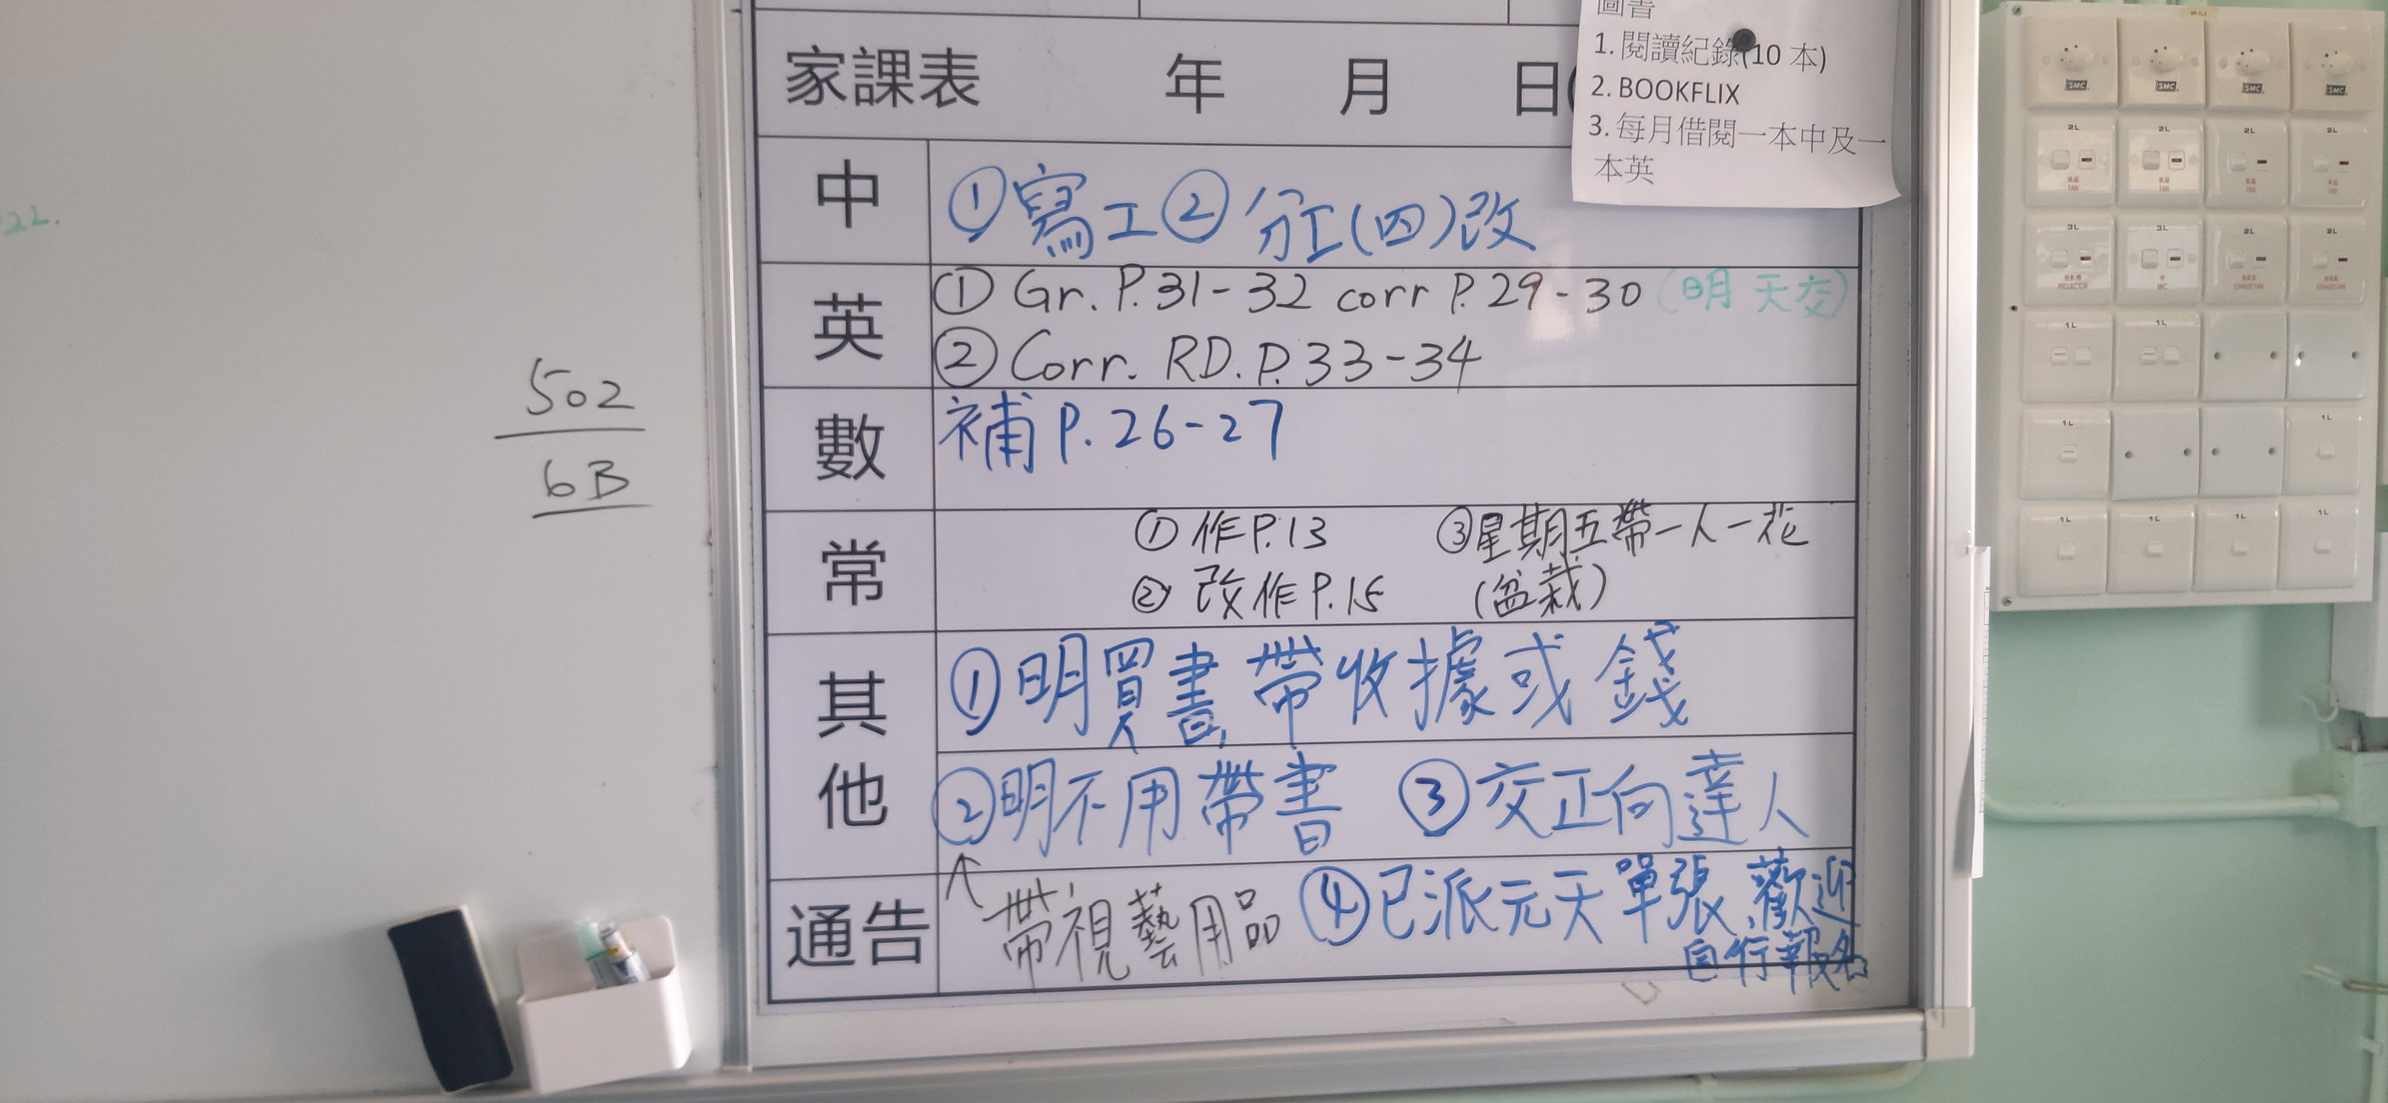 圖書
1. 閱讀紀錄(10 本)
2. BOOKFLIX
3. 每月借閱一本中及一
本英
家課表 年 月 日(
中 ①寫工②分工(四)改
英 ① Gr. P.31-32 corr P.29-30 (明天交)
② Corr. RD. P.33-34
數 補 P.26-27
常 ① 作P.13 ③星期五帶一人一花
② 改作P.15 (盆栽)
其他 ①明買書,帶收據或錢
②明不用帶書 ③交正向達人
通告 ↑帶視藝用品 ④已派元天單張,歡迎
自行報名
22.
502
6B
SMC SMC SMC SMC
2L 2L 2L 2L
FAN FAN FAN FAN
3L 3L 2L 2L
PROJECTOR MIC EXHAUST FAN EXHAUST FAN
1L 1L
1L 1L
1L 1L 1L 1L